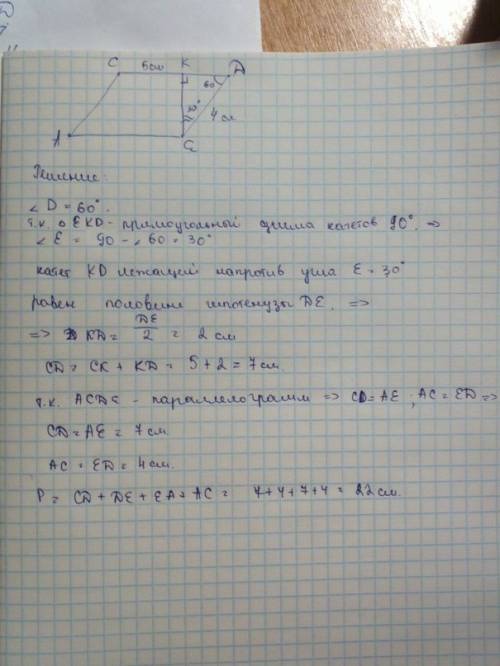 C 5см K D
60°
30° 4 см
A E
Решение:
∠ D = 60°.
т.к. △ EKD - прямоугольный сумма катетов 90°. ⇒
∠ E = 90 - ∠ 60 = 30°
катет KD лежащий напротив угла E = 30°
равен половине гипотенузы DE. ⇒
⇒ KD = DE/2 = 2 см
CD = CK + KD = 5 + 2 = 7 см.
т.к. ACDE - параллелограмм ⇒ CD = AE ; AC = ED ⇒
CD = AE = 7 см.
AC = ED = 4 см.
P = CD + DE + EA + AC = 7+4+7+4 = 22 см.